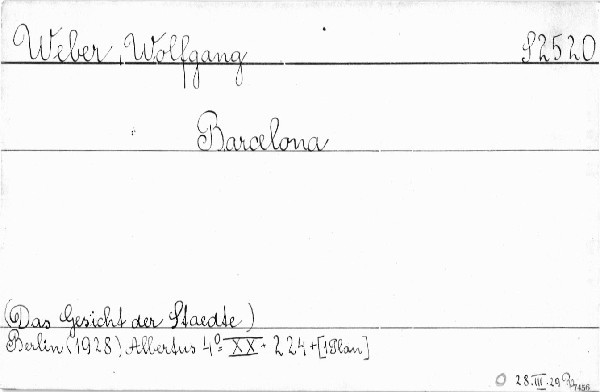 Weber, Wolfgang S2520
Barcelona
(Das Gesicht der Staedte)
Berlin (1928) Albertus 4° XX + 224 + [1 Plan]
28.III.29 7456